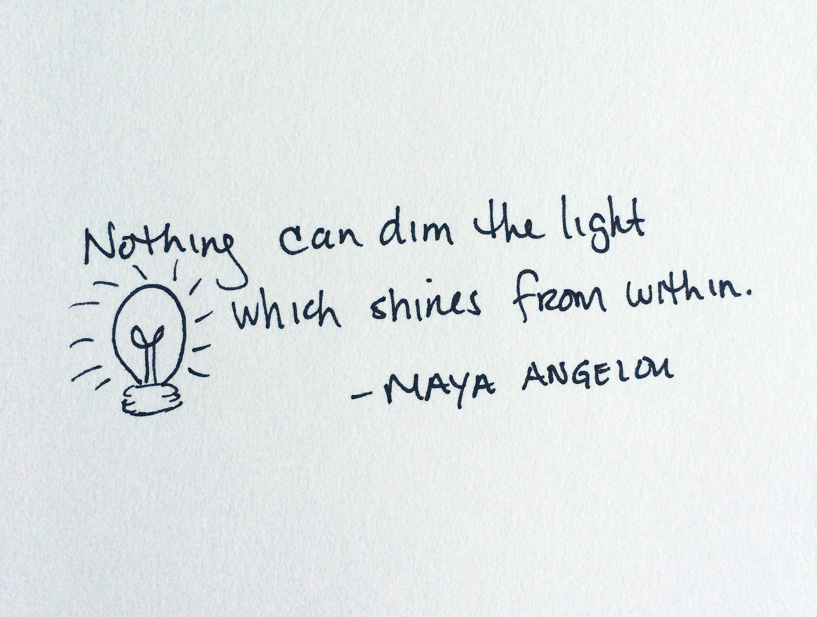 Nothing can dim the light
which shines from within.
- MAYA ANGELOU